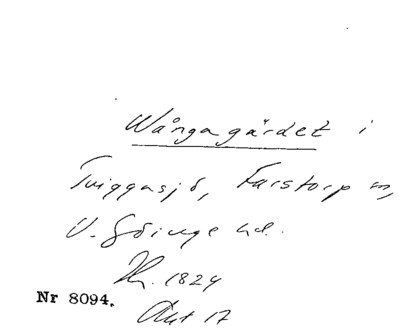 Wångagärdet i
Tviggasjö, Farstorp sn,
V. Göinge hd.
Nr 8094.
Akt 17